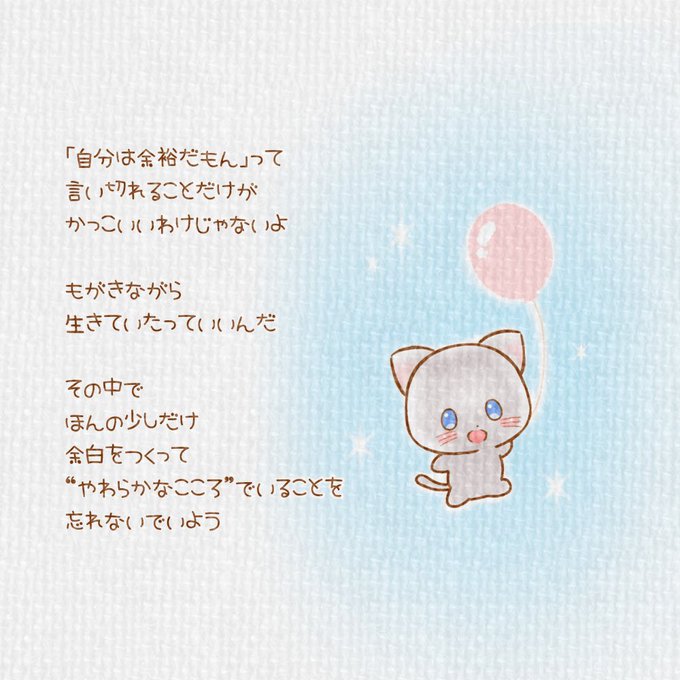 「自分は余裕だもん」って
言い切れることだけが
かっこいいわけじゃないよ
もがきながら
生きていたっていいんだ
その中で
ほんの少しだけ
余白をつくって
“やわらかなこころ”でいることを
忘れないでいよう